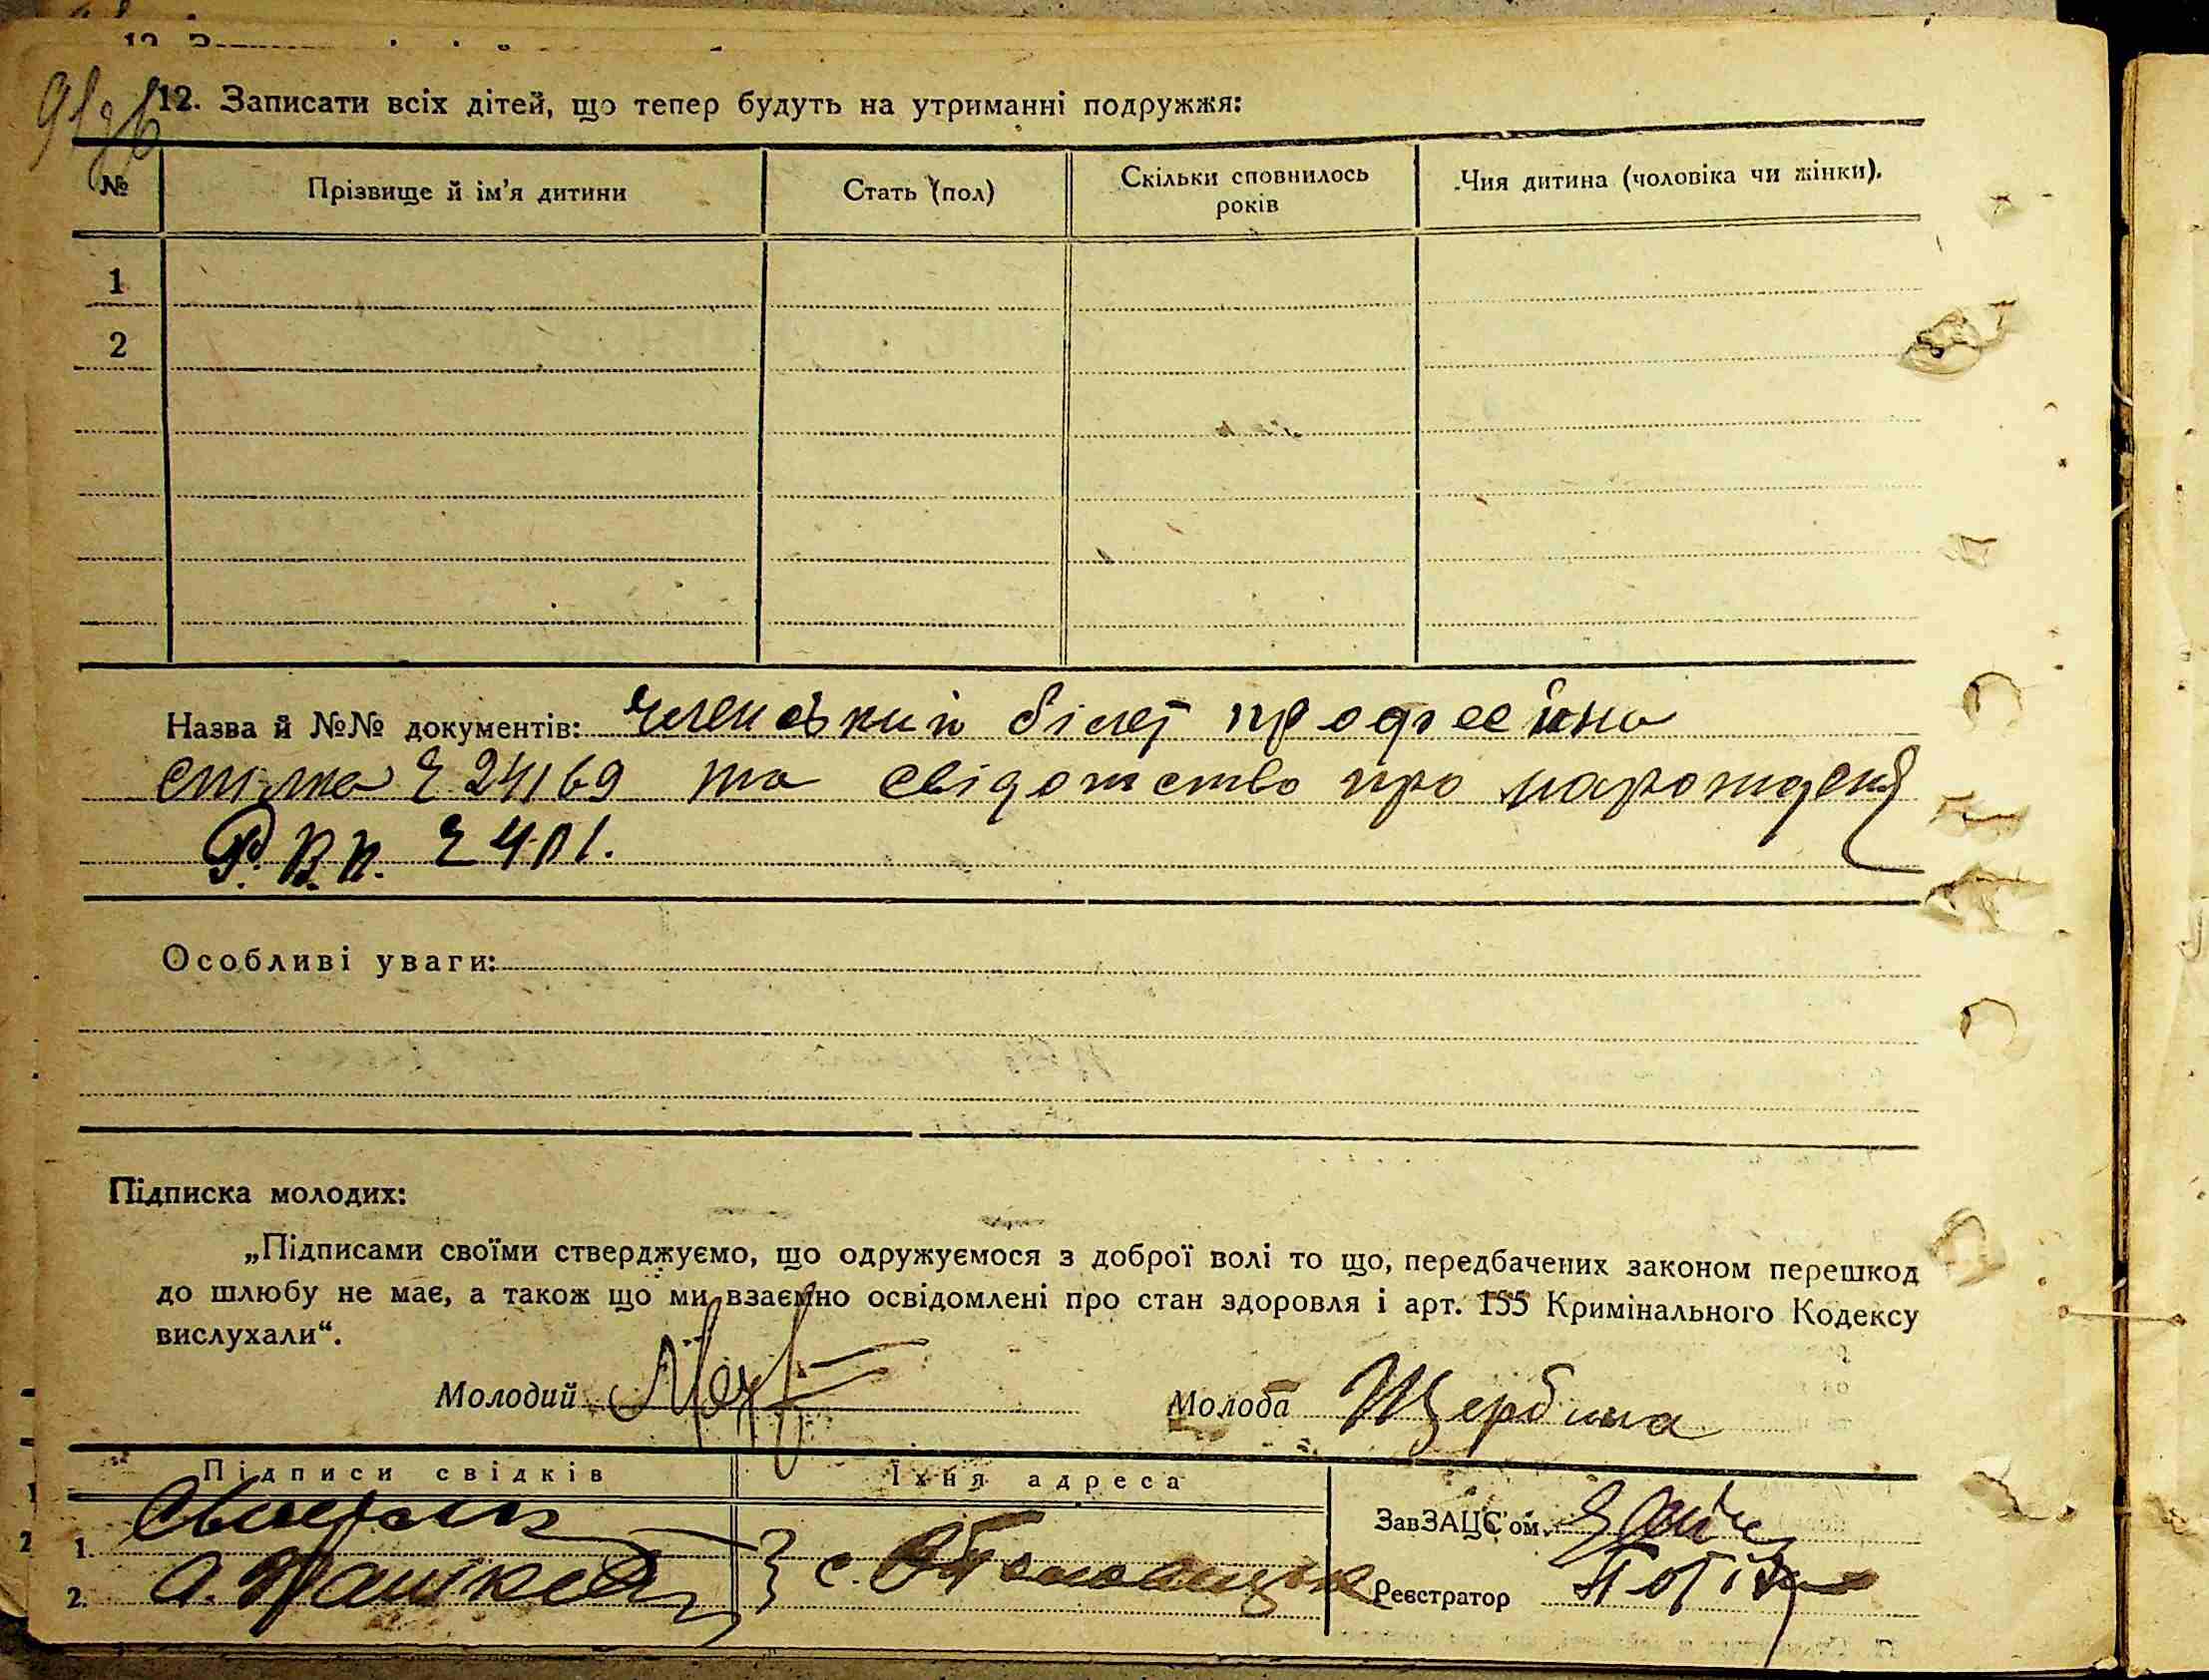 12. Записати всіх дітей, що тепер будуть на утриманні подружжя:
№ Прізвище й ім’я дитини Стать (пол) Скільки сповнилось років Чия дитина (чоловіка чи жінки).
1
2
Назва й №№ документів: Членський білет професійно
спілка 24169 та свідотство про народження
Р.В.К. 2401.
Особливі уваги:
Підписка молодих:
„Підписами своїми стверджуємо, що одружуємося з доброї волі то що, передбачених законом перешкод
до шлюбу не має, а також що ми взаємно освідомлені про стан здоровля і арт. 155 Кримінального Кодексу
вислухали“.
Молодий Молода Щербина
Підписи свідків Їхня адреса
ЗавЗАЦС’ом
1.
2. с.
Реєстратор